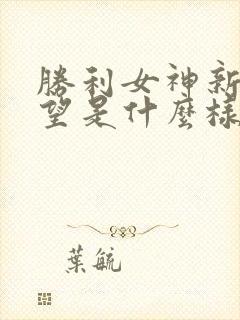 勝利女神新
望是什麼樣
葉毓